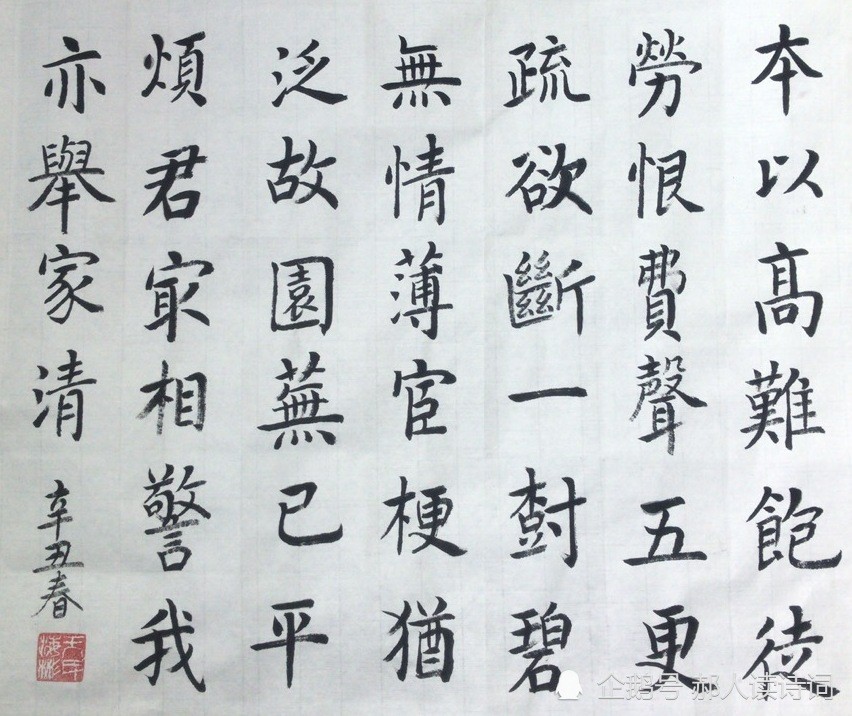 本以高難飽徒
勞恨費聲五更
疏欲斷一樹碧
無情薄宦梗猶
泛故園蕪已平
煩君㝡相警我
亦舉家清
辛丑春
企鹅号 郝人读诗词